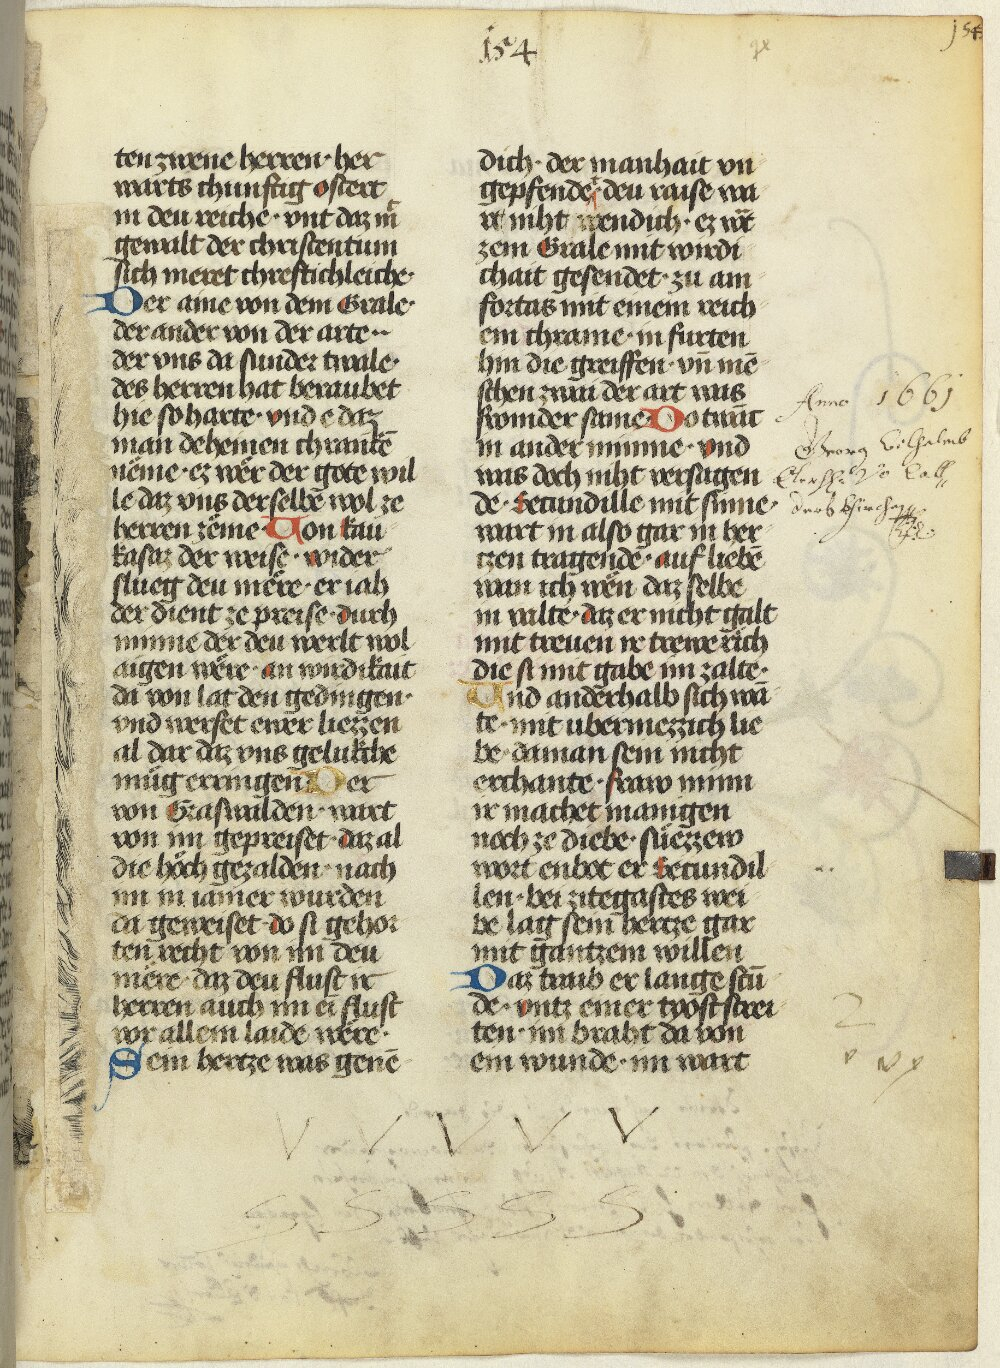 154
154
ten zwene herren · her
warts chunftig ostert
in deu reiche · vnt daz ir
gewalt der christentum
sich meret chrestichleiche ·
Der aine von dem Grale ·
der ander von der arte ··
der vns da sunder twale ·
des herren hat beraubet
hie so harte · vnd e daz
man deheinen chrankē
nēme · ez wer der gote wil
le daz vns der selbē wol ze
herren zēme Von kau
kasaz der weise · wider
slueg deu mere · er iah
der dient ze preise · durch
minne der deu werlt wol
aigen were · an wirdikait
da von lat den gedingen ·
vnd werfet ewer liezzen
al dar daz vns gelukche
mūg erringen · Der
von Graswalden · wart
von im gepreiset · daz al
die hoch gezalden · nach
im in iamer wurden
da geweiset · do si gehor
ten recht von im deu
mere · daz deu flust ir
herren auch im ein flust
vor allem laide were ·
Sein hertze was genē
dich · der manhait vn
gepfendet · deu raise wa
rt niht wendich · ez wr
zem Grale mit wirdi
chait gesendet · zu am
fortas mit einem reich
em chrame · in furten
hin die greiffen · vn̄ mē
schen zwai der art was
wunder same Do twāt
in ander minne · vnd
was doch niht versagen
de · Secundille mit sinne ·
wart in also gar in her
tzen tragende · auf liebē
wan ich wen daz selbe
in valte · daz er nicht galt
mit treuen ir trewe rich
die si mit gabe im zalte ·
Vnd anderhalb sich wā
te · mit ubermezzich lie
be · da man sein nicht
erchante · fraw minn
ir machet manigen
noch ze diebe · suezzew
wort enbot er Secundil
len · bei zitegastes wei
be lag sein hertze gar
mit gantzem willen
Daz traib er lange stū
de · vntz einer tyost strei
ten · im braht da von
ein wunde · im wart
Anno 1661
Georg Wilhelmb
V V V V V
S S S S S
2